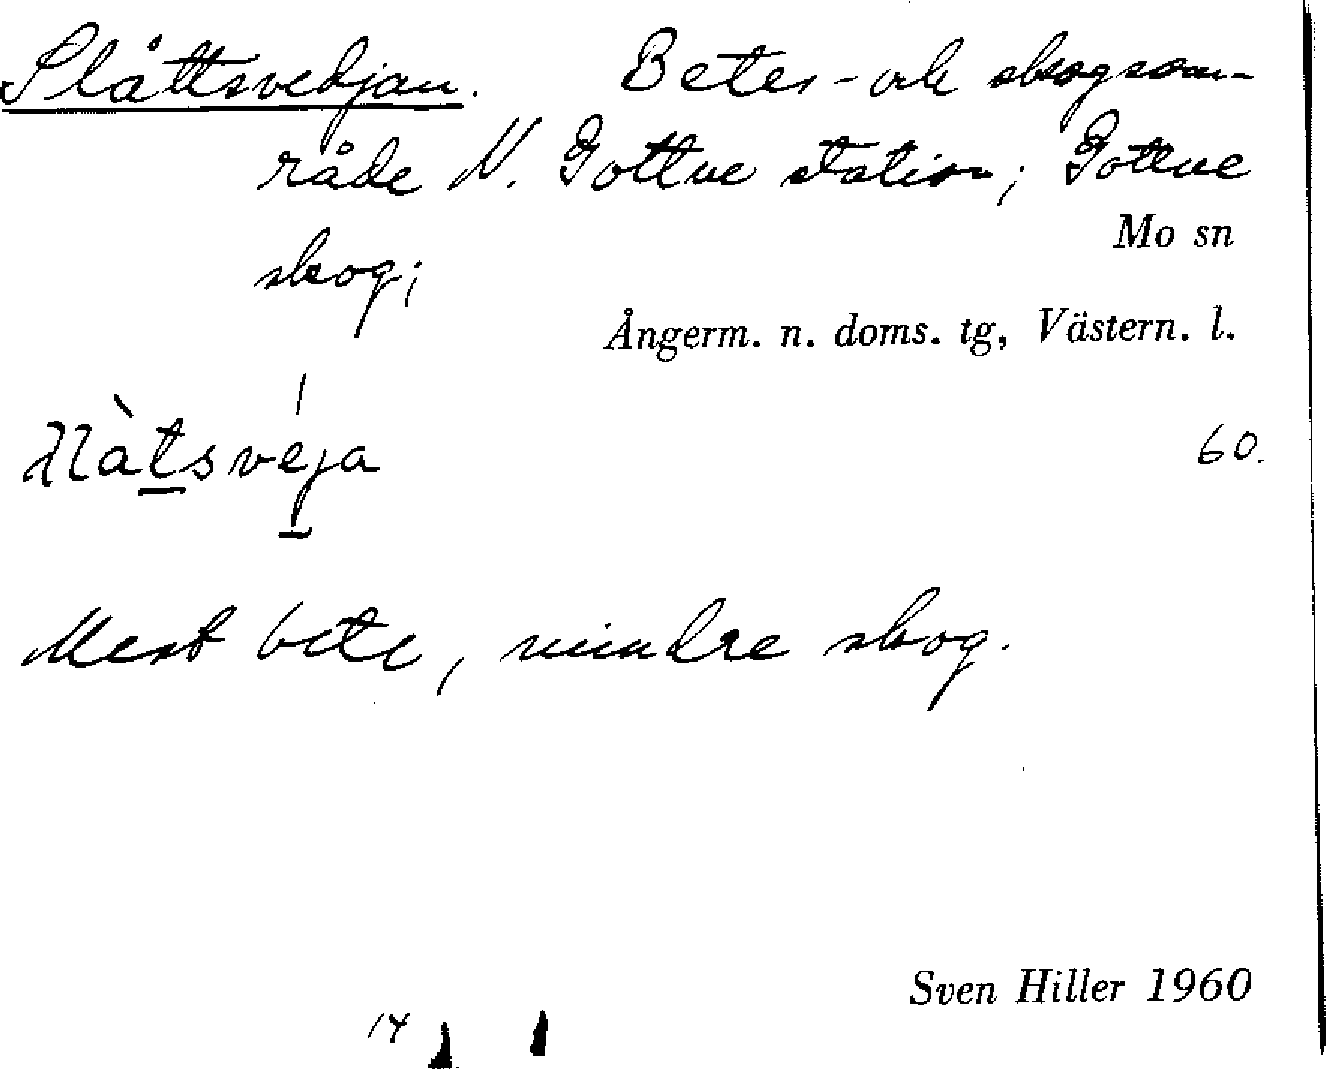 Slåttsvedjan. Betes- och skogsom-
råde N. Gottne station; Gottne
Mo sn
skog;
Ångerm. n. doms. tg, Västern. l.
60.
Mest bete, mindre skog.
Sven Hiller 1960
14